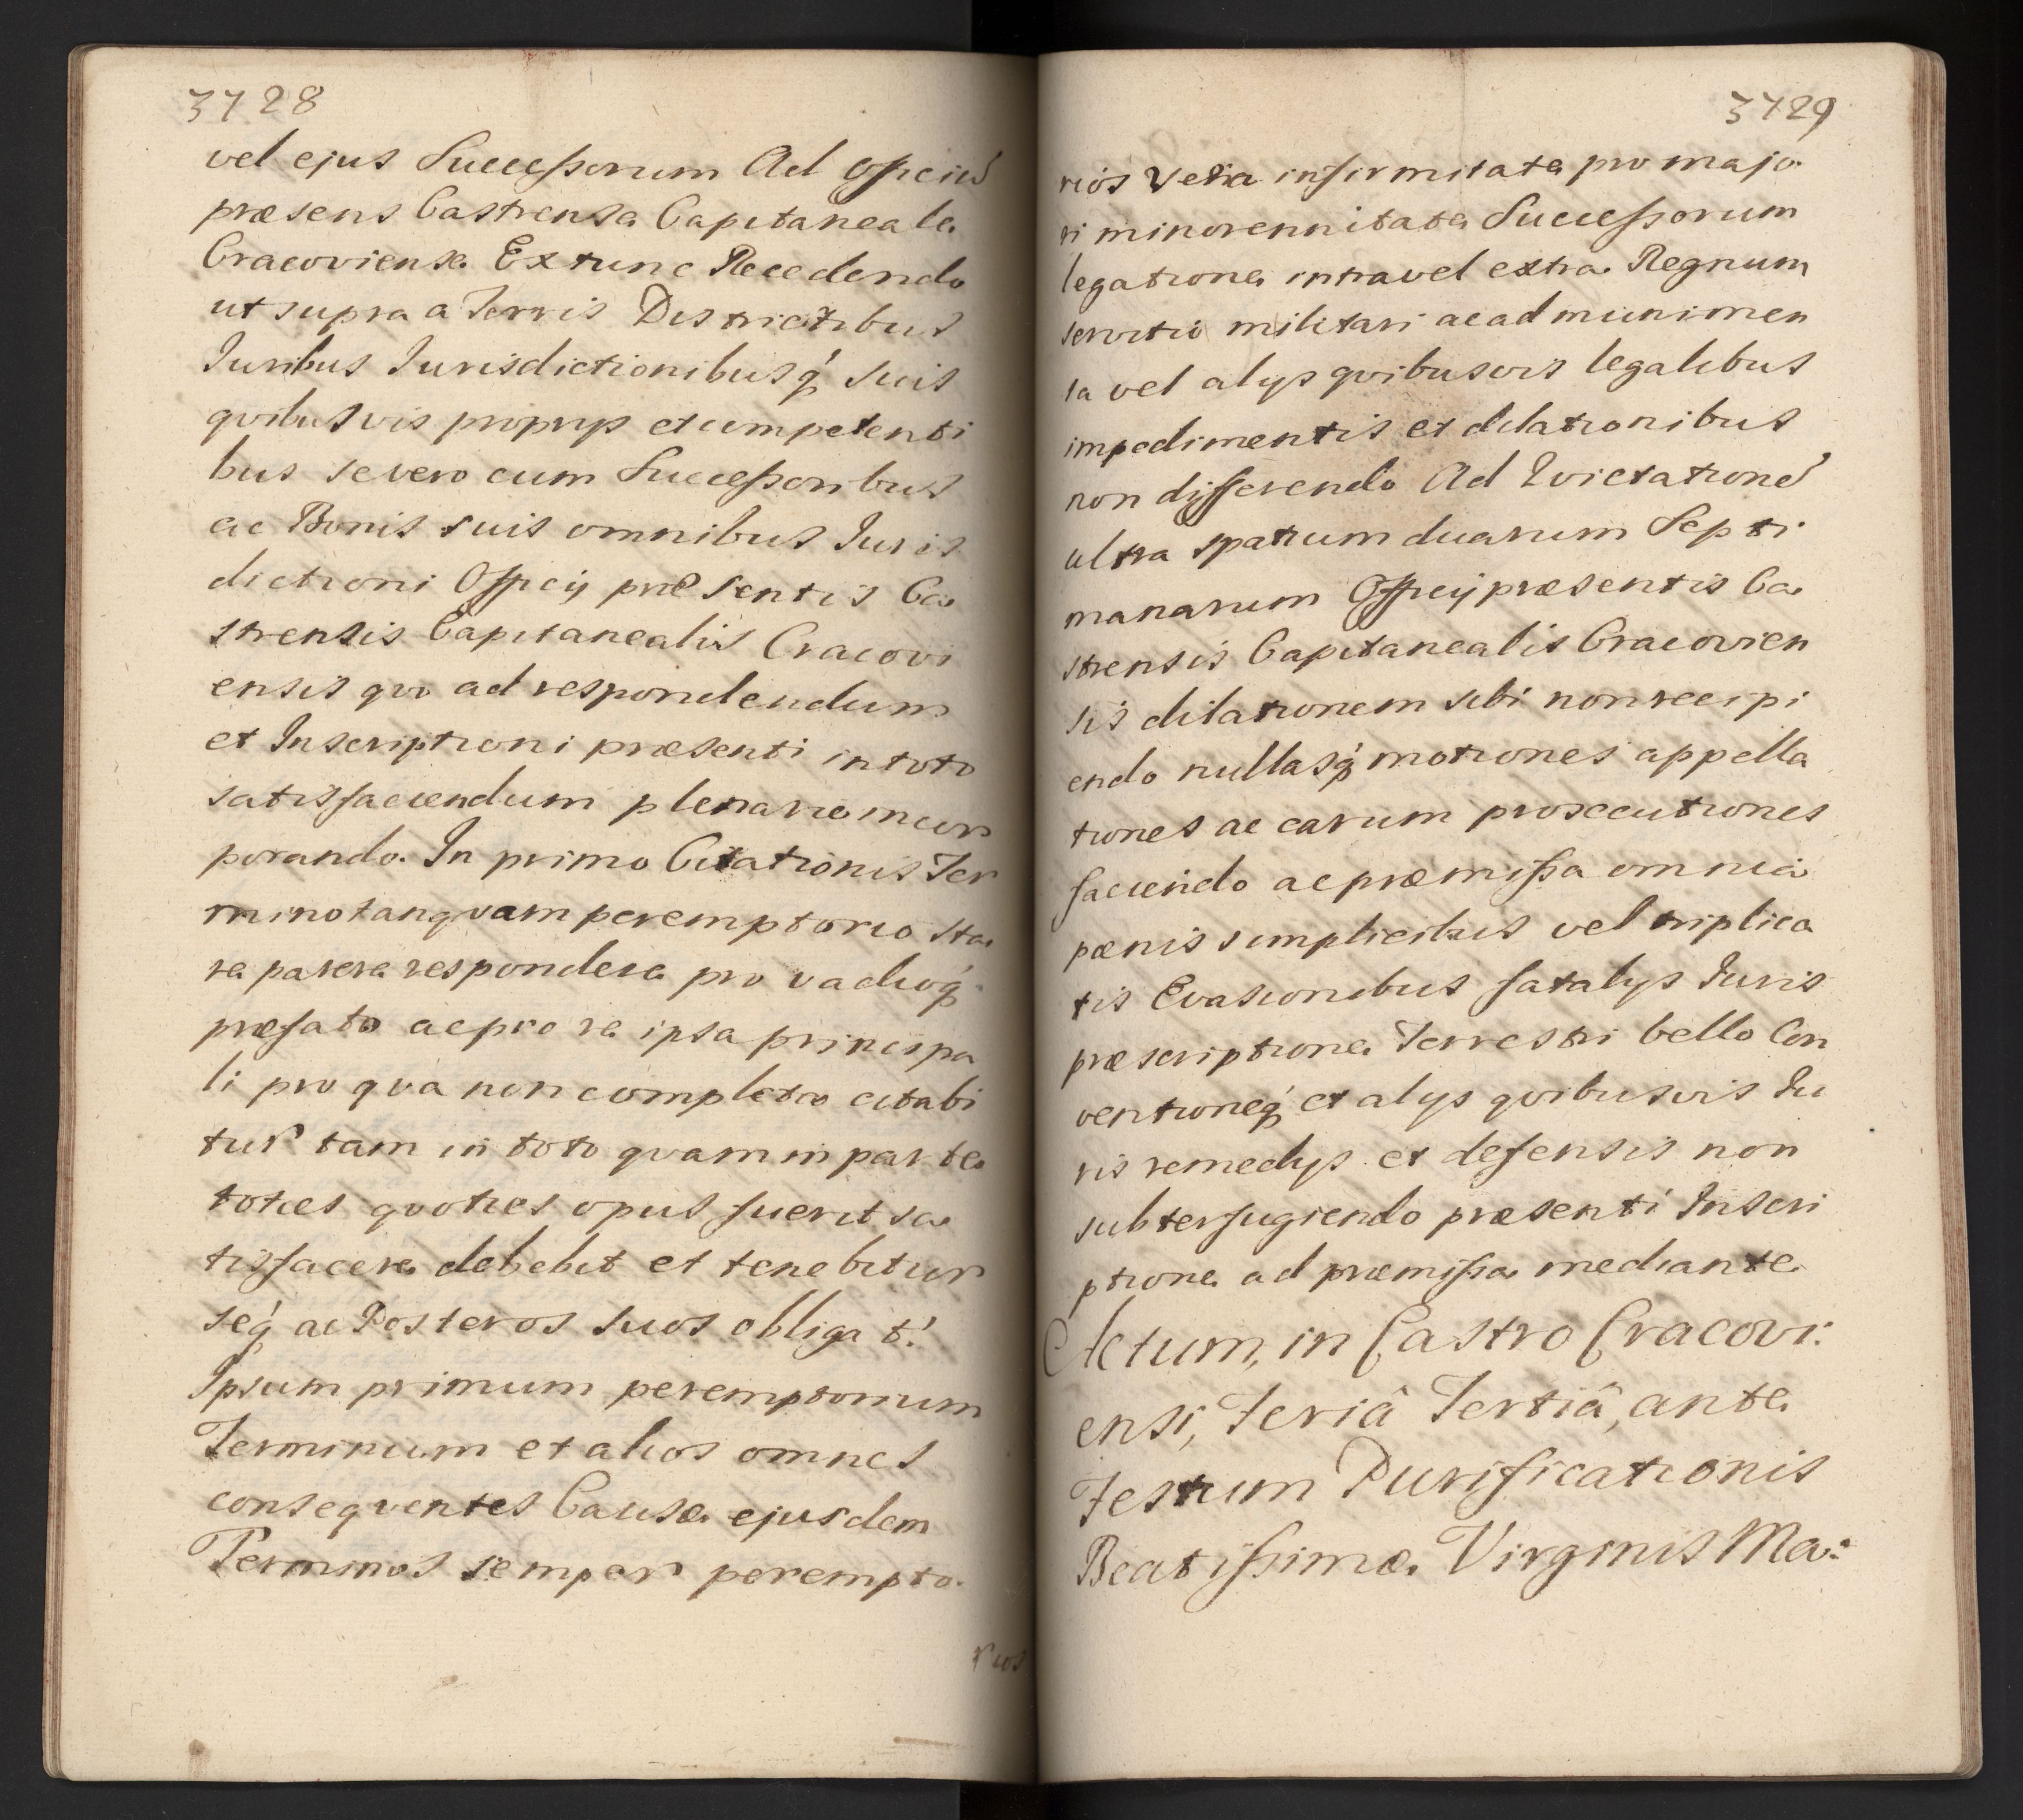 3728
vel ejus Successorum Ad Officiũ
præsens Castrense Capitaneale
Cracoviense Extunc Recedendo
ut supra a Terris Districtibus
Iuribus Iurisdictionibusq́ suis
qvibusvis proprys et competenti
bus se vero cum Successoribus
ac Bonis suis omnibus Iuris
dictioni Officij præsentis Ca
strensis Capitanealis Cracovi
ensis qvo ad respondendum
et Inscriptioni præsenti in toto
satisfaciendum plenarie incor
porando. In primo Citationis Ter
mino tanqvam peremptorio sta
re parere respondere pro vadioq́
præfato ac pro re ipsa principa
li pro qva non completa citabi
tur tam in toto qvam in parte
toties qvoties opus fuerit sa
tisfacere debebit et tenebitur
seq́ ac Posteros suos obligat:
Ipsum primum peremptorium
Terminum et alios omnes
conseqventes Causæ ejusdem
Terminos semper perempto
rios
3729
rios Vera infirmitate pro majo
ri minorennitate Successorum
legatione intra vel extra Regnum
servitio militari ac ad munimen
ta vel alys qvibusvis legalibus
impedimentis et dilationibus
non differendo Ad Evictationẽ
ultra spatium duarum Septi
manarum Officij præsentis Ca
strensis Capitanealis Cracovien
sis dilationem sibi non recipi
endo nullasq́ motiones appella
tiones ac earum prosecutiones
faciendo ac præmissa omnia
pænis simplicibus vel triplica
tis Evasionibus fatalys Iuris
præscriptione Terrestri bello Con
ventioneq́ et alys qvibusvis Iu
ris remedys et defensis non
subterfugiendo præsenti Inscri
ptione ad præmissa mediante
Actum, in Castro Cracovi:
ensi, Feriâ Tertiâ, ante
Festum Purificationis
Beatissimæ Virginis Ma: